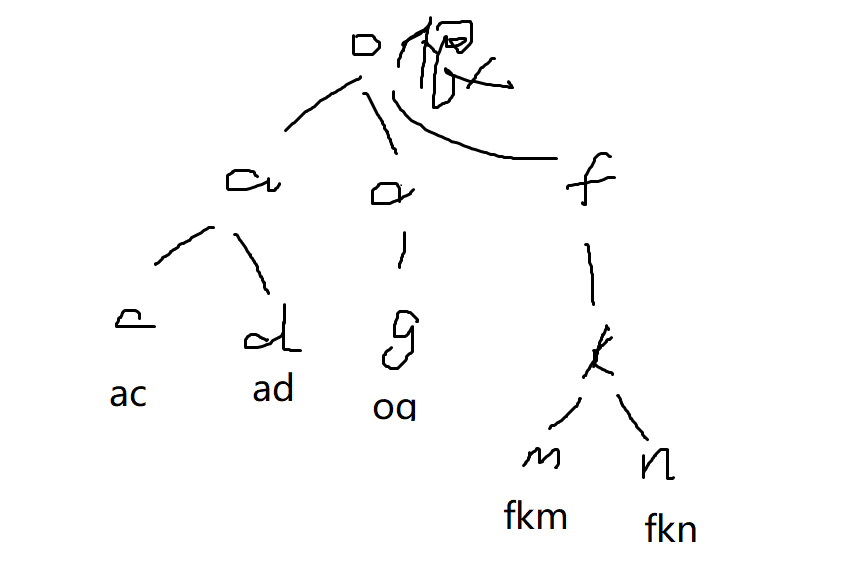 a o f
c d g k
ac ad og
m n
fkm fkn